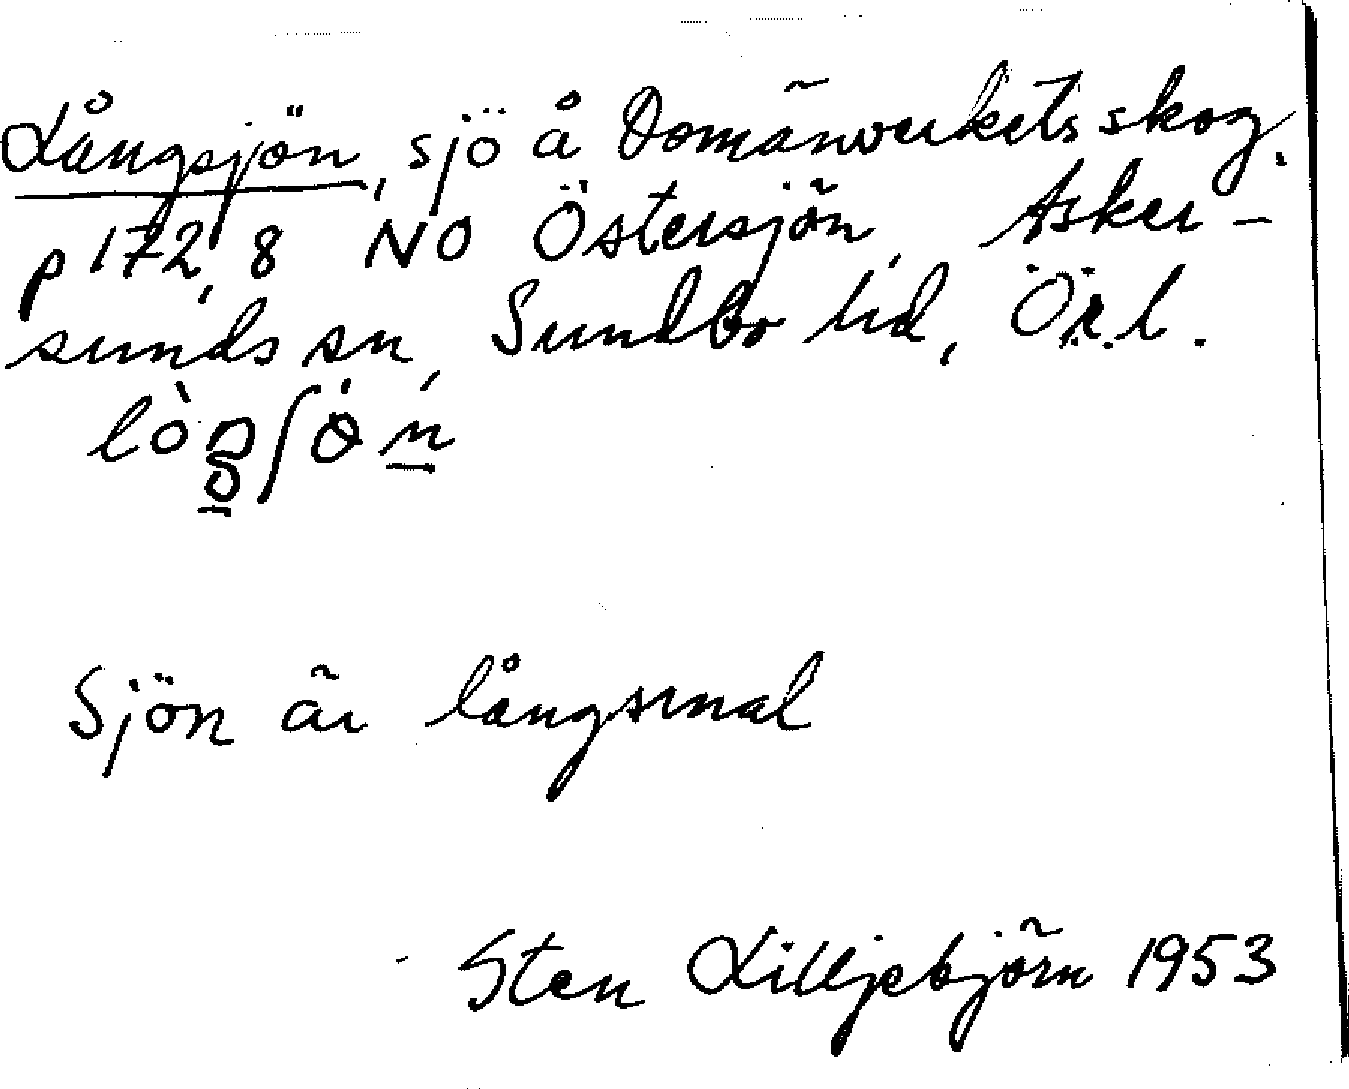 Långsjön, sjö å Domänverkets skog.
p 172,8 NO Östersjön, Asker-
sunds sn, Sundbo hd, Ör.l.
Sjön är långsmal
Sten Lilljebjörn 1953